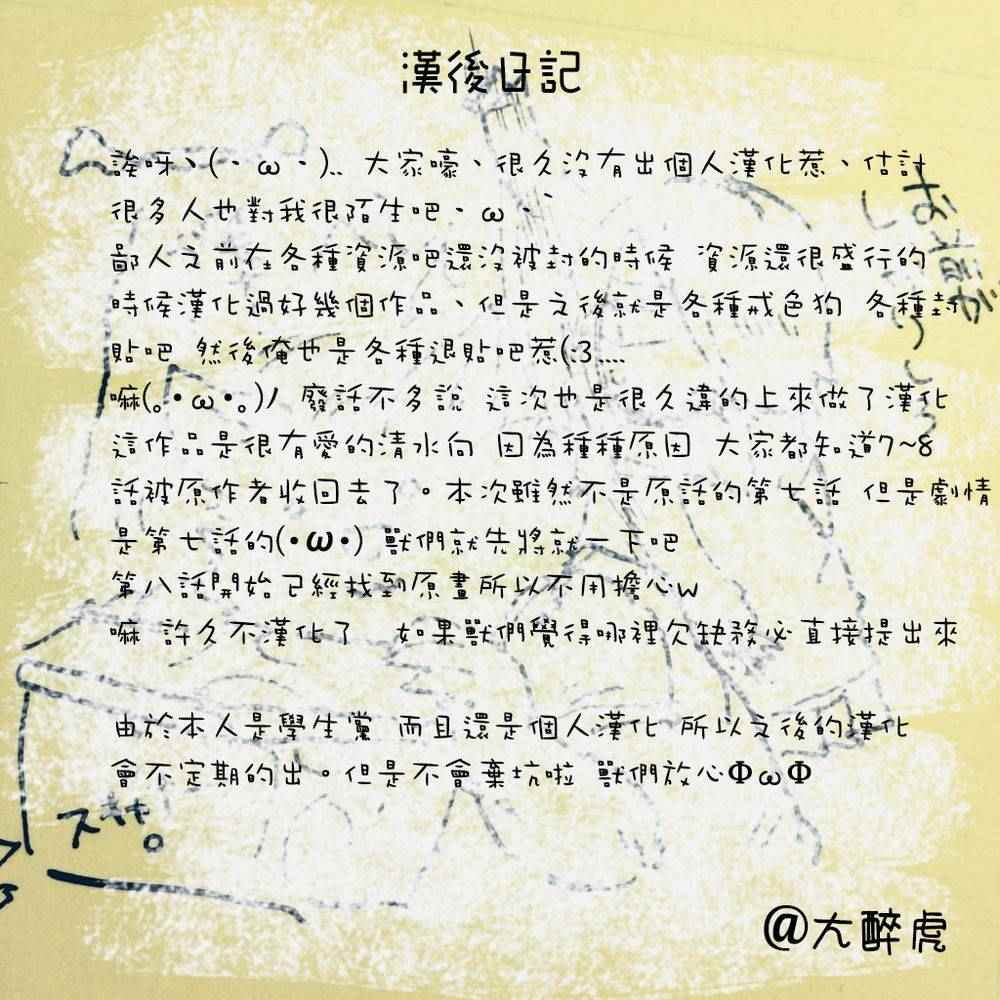 漢後日記
誒呀丶(・ω・).. 大家嚎、很久沒有出個人漢化惹、估計
很多人也對我很陌生吧・ω・`
鄙人之前在各種資源吧還沒被封的時候 資源還很盛行的
時候漢化過好幾個作品、但是之後就是各種戒色狗 各種封
貼吧 然後俺也是各種退貼吧惹(:3....
嘛(｡•ω•｡)ﾉ 廢話不多說 這次也是很久違的上來做了漢化
這作品是很有愛的清水向 因為種種原因 大家都知道7~8
話被原作者收回去了。本次雖然不是原話的第七話 但是劇情
是第七話的(•ω•) 獸們就先將就一下吧
第八話開始已經找到原畫所以不用擔心w
嘛 許久不漢化了 如果獸們覺得哪裡欠缺務必直接提出來
由於本人是學生黨 而且還是個人漢化 所以之後的漢化
會不定期的出。但是不會棄坑啦 獸們放心ΦωΦ
@大醉虎